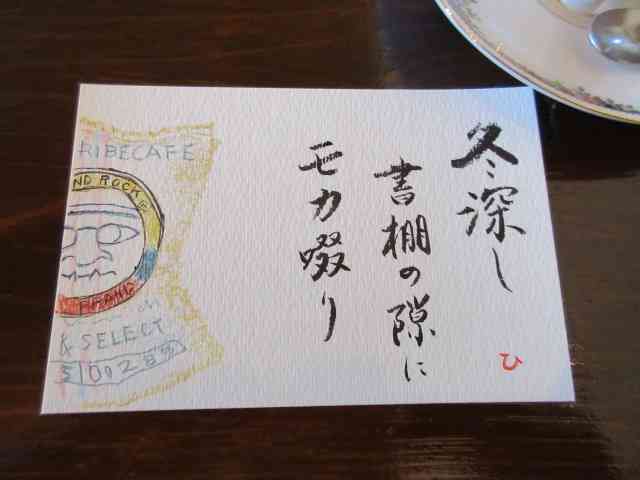 冬深し
書棚の隙に
モカ啜り
ひ
RIBECAFE
ND ROCK
BRAND
& SELECT